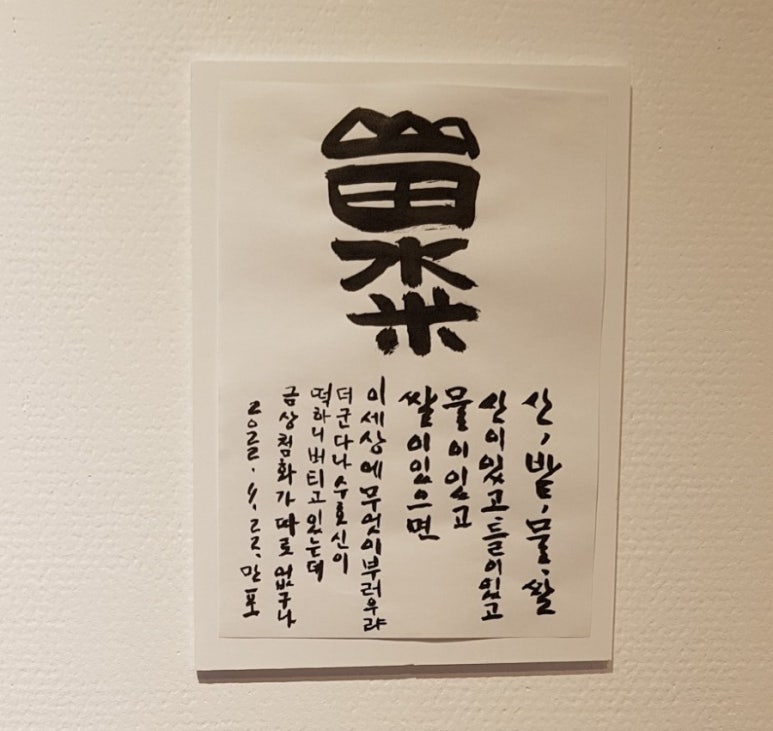 山
田
水
米
산, 밭, 물, 쌀
산이있고 들이있고
물이있고
쌀이있으면
이세상에 무엇이부러우랴
더군다나 수호신이
떡하니버티고 있는데
금상첨화가 따로 없구나
만포